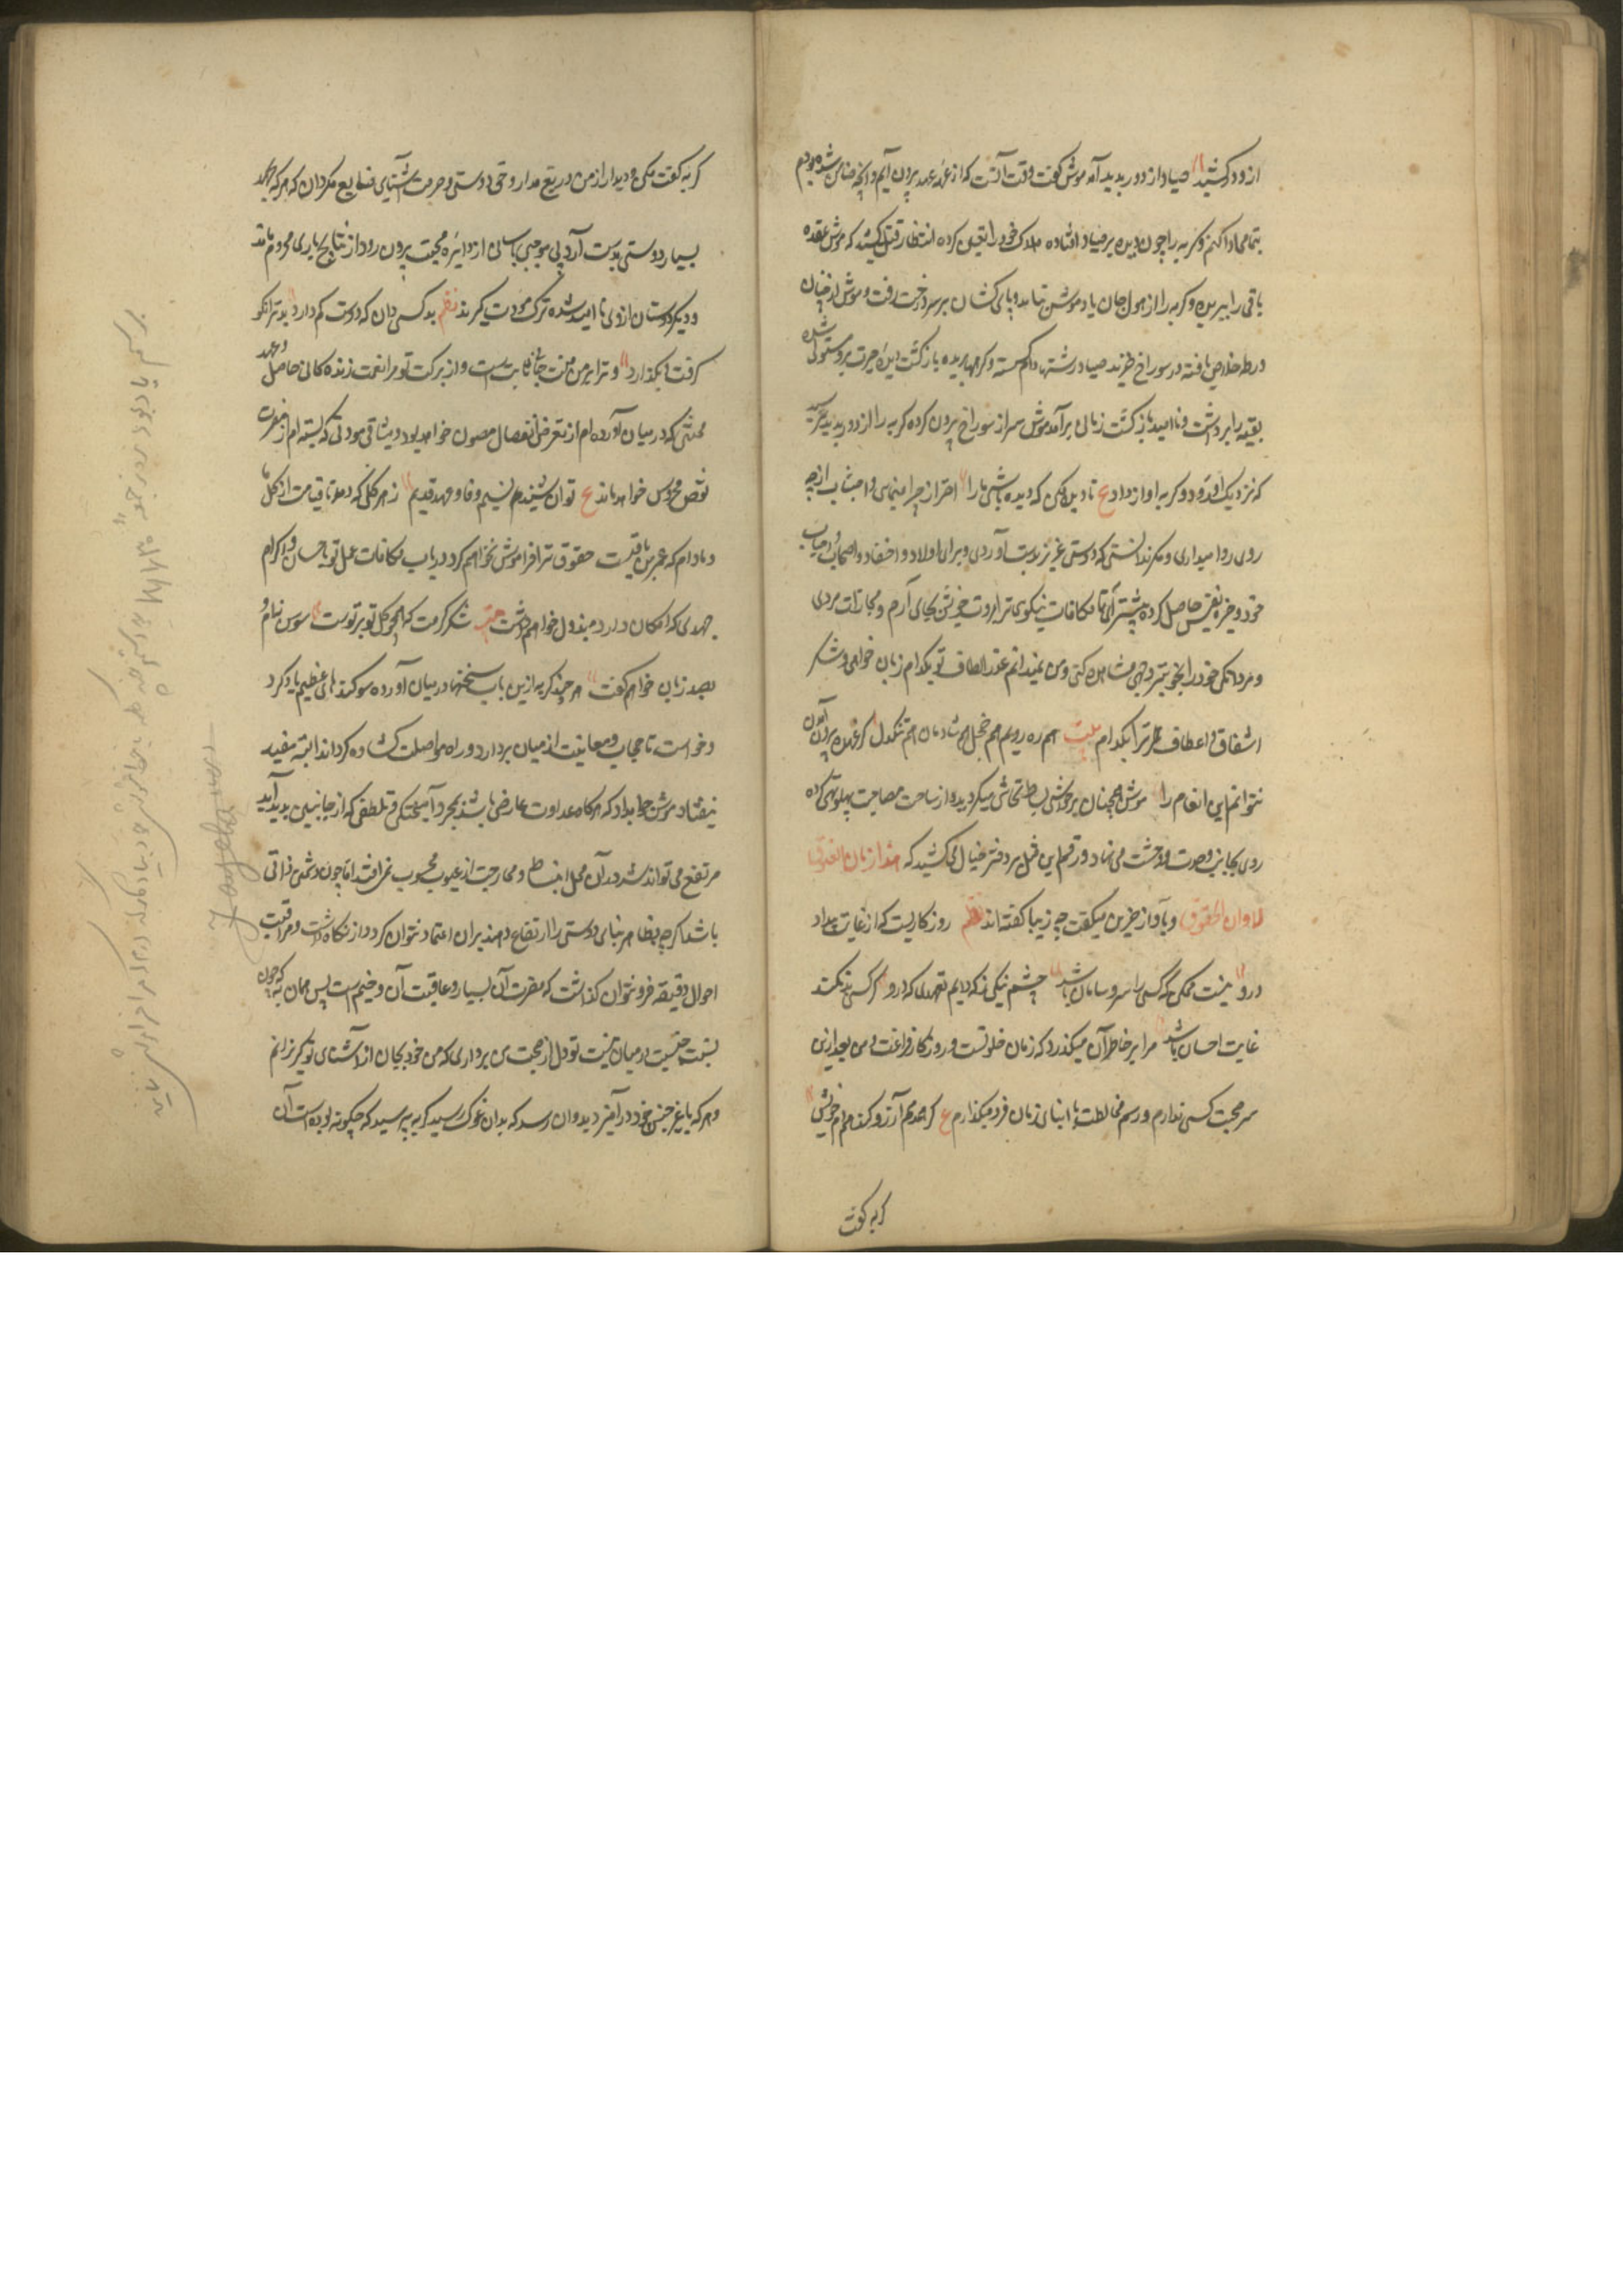 ازو در کشید صیاد از دور پدید آمد موش گفت وقت آنست که از عهدهٔ عهد بیرون آیم و آنچه ضامن شده بودم
بتمامی ادا کنم و گربه را چون دیده بر صیاد افتاد هلاک خود را یقین کرده انتظار قتل میکشید که موش عقدهٔ
باقی را ببرید و گربه را از هول جان یاد موش نیامد و پای کشان بر سر درخت رفت و موش از چنان
ورطه خلاص یافته در سوراخ خزید صیاد رشتهٔ دام گسسته و گرهها بریده بازگشت دیده حیرت برو مستولی شده
بقیه را برداشت و ناامید بازگشت زمانی برآمد موش سر از سوراخ بیرون کرده گربه را از دور بدید
که نزدیک او رود گربه آواز داد ع نادیده مکن که دیده باشی ما را احتراز چرا مینمایی و اجتناب از چه
روی روا میداری و مگر ندانستی که دوستی عزیز بدست آوردی و برای اولاد و احفاد و اصحاب و احباب
خود ذخیرهٔ نفیس حاصل کرده پیشتر آی تا مکافات نیکویی ترا بمروت خویش بجای آرم و مجازات مردی
و مردانگی خود را بخوبترین وجهی مشاهده کنی و من نمیدانم عذر الطاف تو بکدام زبان خواهم و شکر
اشفاق و اعطاف ترا بکدام بیت هم ره رویم هم خجل هم شادمان هم تنگدل کز عهده بیرون آمدن
نتوانم این انعام را موش همچنان بر حواشی بساط تحاشی میگردید و از ساحت مصاحبت پهلو تهی کرده
روی بجانب وحدت و وحشت می نهاد و رقم این مثل بر دفتر خیال می کشید که هذا زمان العقوق
لا اوان الحقوق و بآواز حزین میگفت چه زیبا گفته اند نظم روزگاریست که از غایت بیداد
درو نیست ممکن که کسی را سر و سامان باشد چشم نیکی نه که داریم تعهدی که درو گر کسی بد نکند
غایت احسان باشد مرا بر خاطر آن میگذرد که زمان خلوتست و روزگار فراغت و من بعد ازین
سر صحبت کسی ندارم و رسم مخالطت با ابنای زمان فرو میگذارم ع گر همدم آرزو کنم همدم خویش
گربه گفت
گربه گفت مکن و دیدار از من دریغ مدار و حق دوستی و حرمت آشنایی ضایع مگردان که هر که بجهد
بسیار دوستی بدست آرد و بی موجبی باسانی از دایرهٔ محبت بیرون رود از نتایج یاری محروم ماند
و دیگر دوستان از وی ناامید شده ترک مودت گیرند نظم بد کسی دان که دوست کم دارد بد تر آنکو
گرفت بگذارد و ترا بر من منت جانی ثابت است و از برکت تو مرا نعمت زندگانی حاصل و عهد
محبتی که در میان آورده ام از تعرض انفصال مصون خواهد بود و میثاق مودتی که بسته ام از مضرت
نقص محروس خواهد ماند ع توان شنید نسیم وفا و عهد قدیم ز هر گلی که دمد تا قیامت از گل ما
و مادام که عمر من باقیست حقوق ترا فراموش نخواهم کرد و در باب مکافات عمل تو باحسان و اکرام
جهدی که امکان دارد مبذول خواهم داشت بیت شکر کرمت که همچو گل تو بر توست سوسن نیم و
بصد زبان خواهم گفت هر چند گربه ازین باب سخنها در میان آورده سوگندهای عظیم یاد کرد
و خواست تا حجاب مباینت از میان بردارد و راه مواصلت گشاده گرداند البته مفید
نیفتاد موش جواب داد که هرگاه عداوت عارضی باشد بمجرد آمیختگی و تلطفی که از جانبین پدید آید
مرتفع می تواند شد و در آن محل انبساط و ممازجت از عیوب محسوب نمی افتد اما چون دشمنی ذاتی
باشد اگرچه بظاهر بنای دوستی را ارتفاع دهند بر آن اعتماد نتوان کرد و از نگاهداشت و مراقبت
احوال دقیقه فرو نتوان گذاشت که مضرت آن بسیار و عاقبت آن وخیم است پس همان به که چون
نسبت جنسیت در میان نیست تو دل از صحبت من برداری که من خود بجان از آشنایی تو گریزانم
و هر که با غیر جنس خود درآمیزد بدو آن رسد که بدان غوک رسید گربه پرسید که چگونه بوده است آن